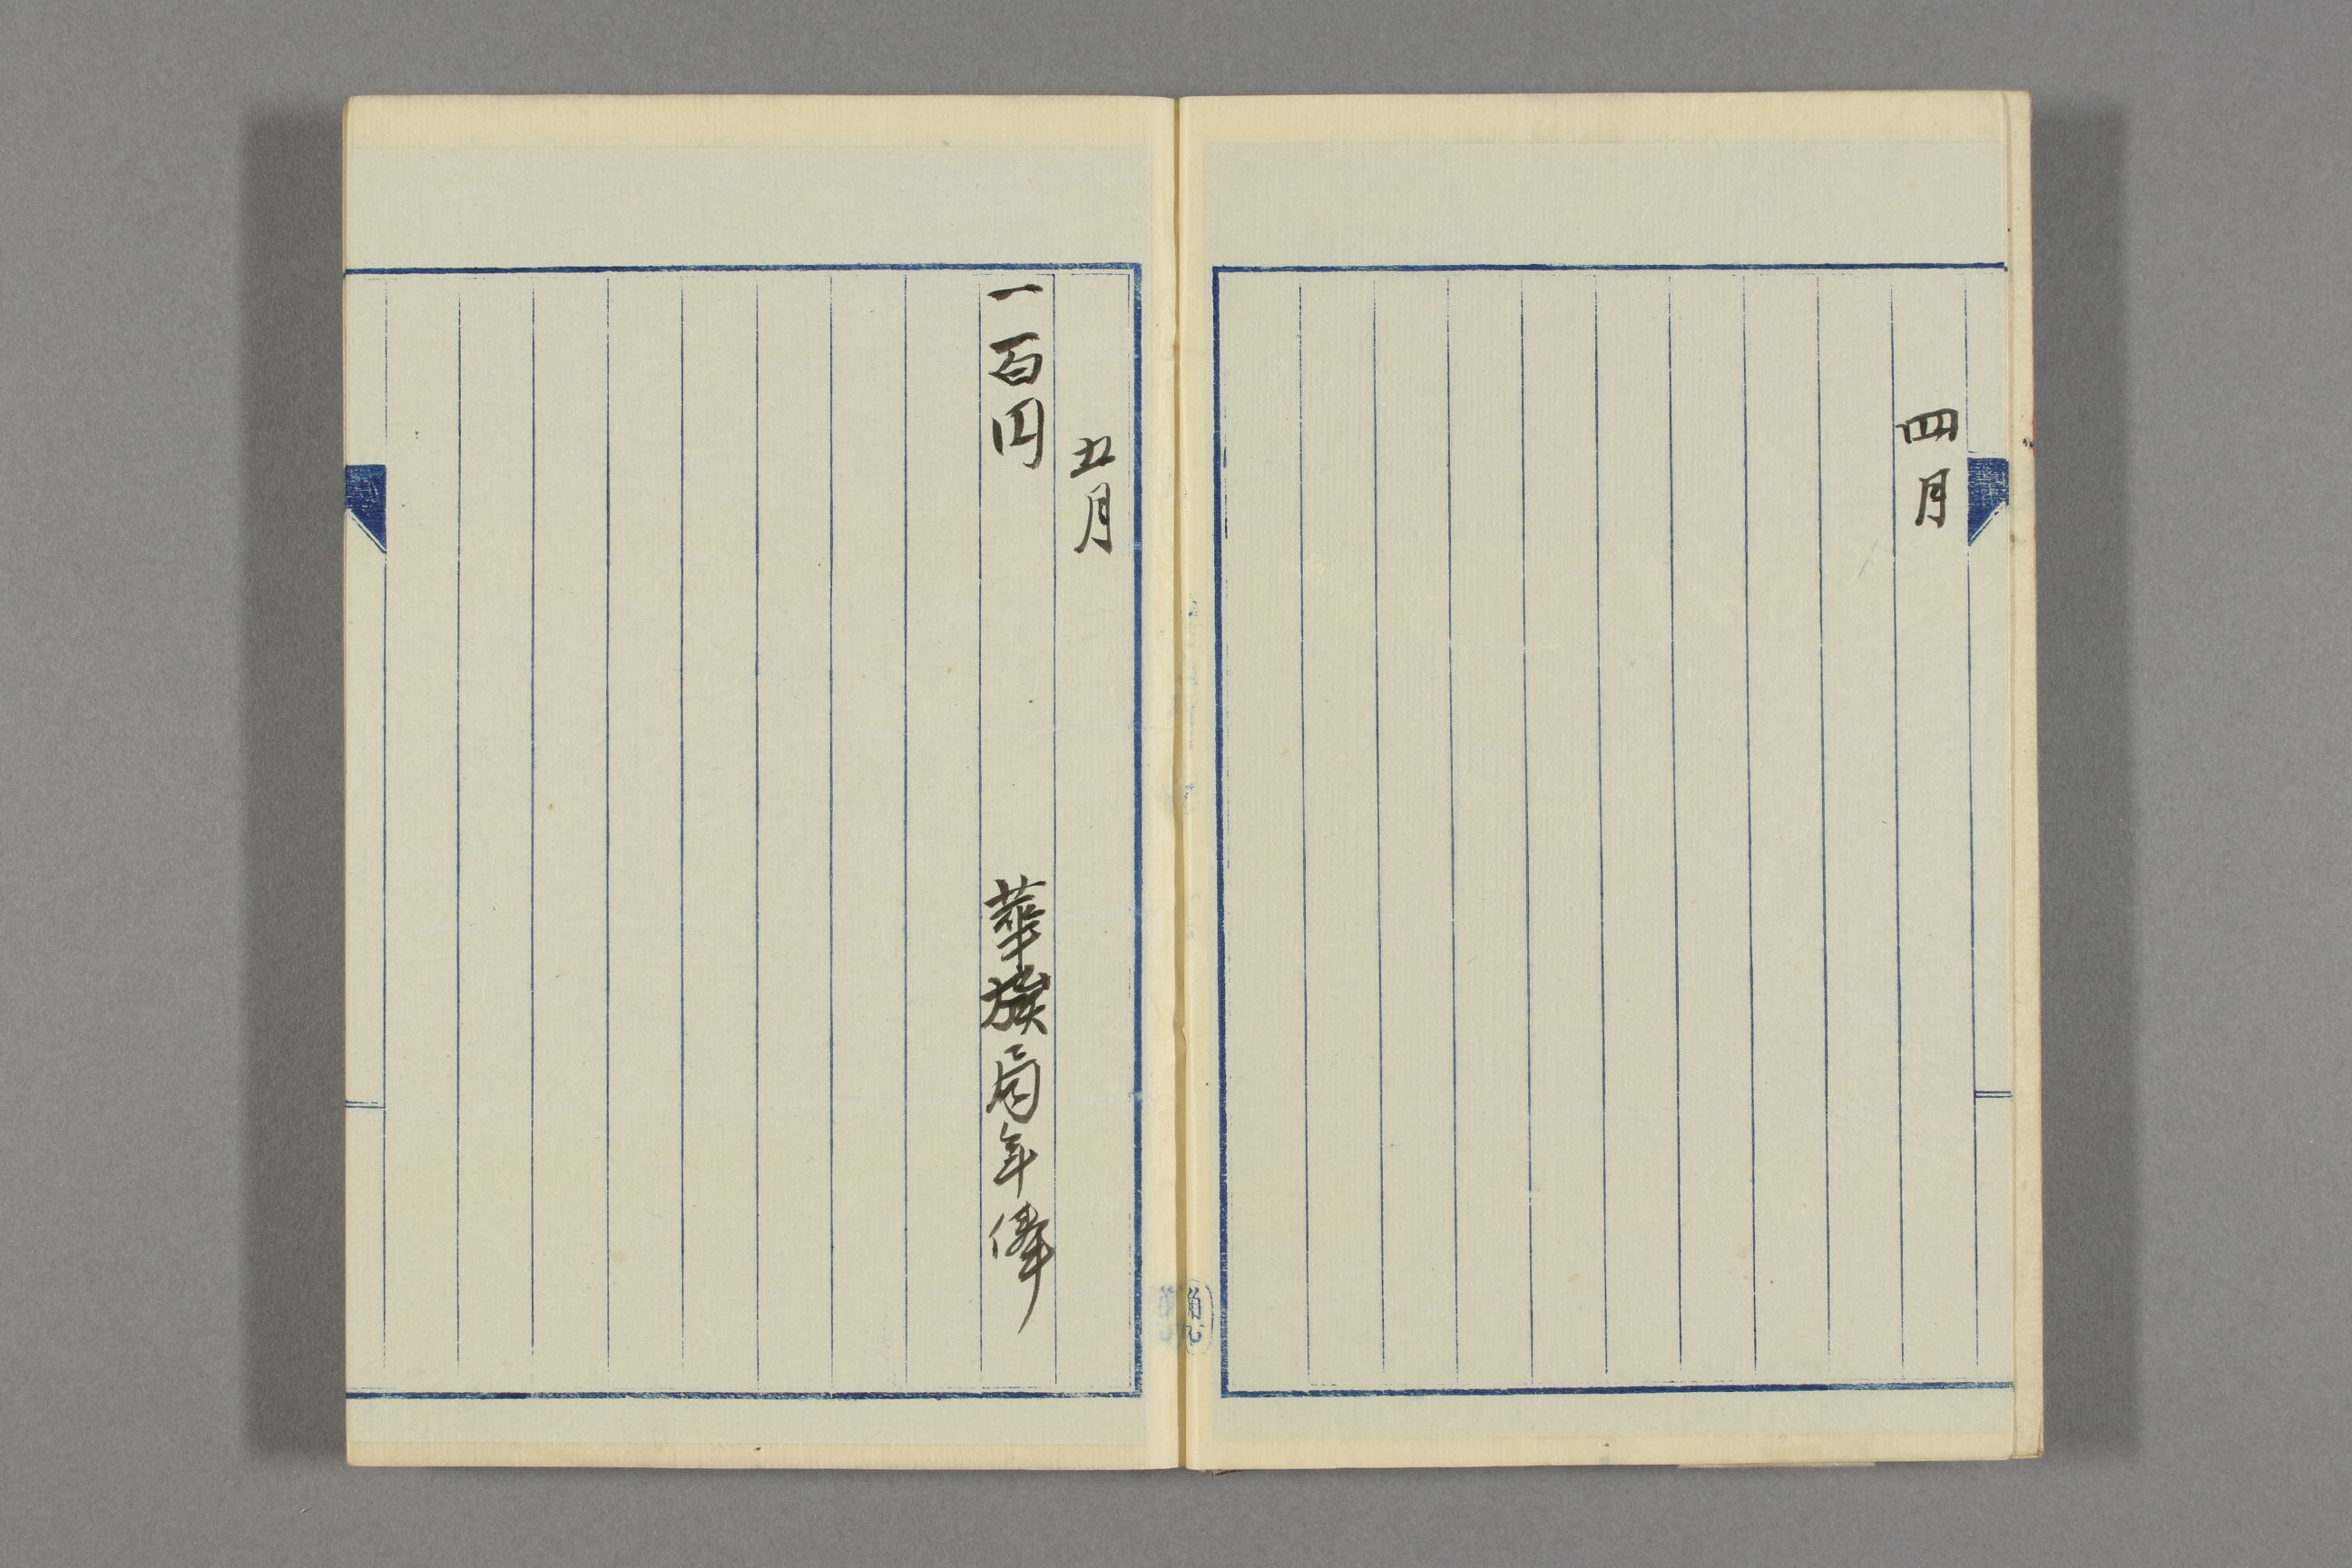 四月
五月
一百円　華族局年俸